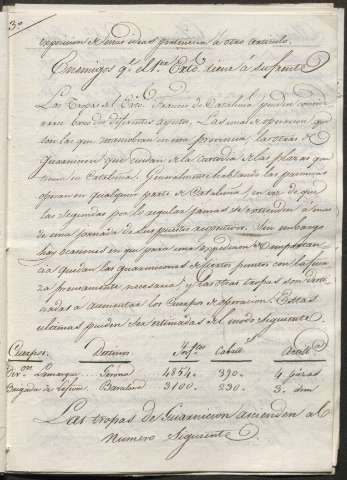 3º
exposicion de mis ideas primeras a otro articulo.
Enemigos q.e el 1.er Exto. tiene á su frente
Las Tropas del Exto. Frances de Cataluña pueden consid
erarse bajo dos diferentes aspectos. Las unas de operacion que
son las que maniobran en esta provincia, las otras de
Guarnicion que cuidan de la Custodia de las plazas que
tiene en Cataluña. Generalmente hablando las primeras
operan en qualquier parte de Cataluña, en vez de que
las segundas por lo regular jamas se extienden á mas
de una jornada de sus puestos respectivos. Sin embargo
hay ocasiones en que para una expedicion de importan
cia quedan las guarniciones de ciertos puntos con la fuerza
precisamente necesaria y las otras tropas son desti
nadas a aumentar los Cuerpos de operacion. Estas
ultimas pueden ser estimadas del modo siguiente.
Cuerpos. Destinos Inf.a Caball.a Artill.a
Div.on Lamarque Gerona 4854. 390. 4 piezas
Brigada de Barcelona 3100. 230. 3. idem
Las tropas de Guarnicion ascienden al
numero siguiente.